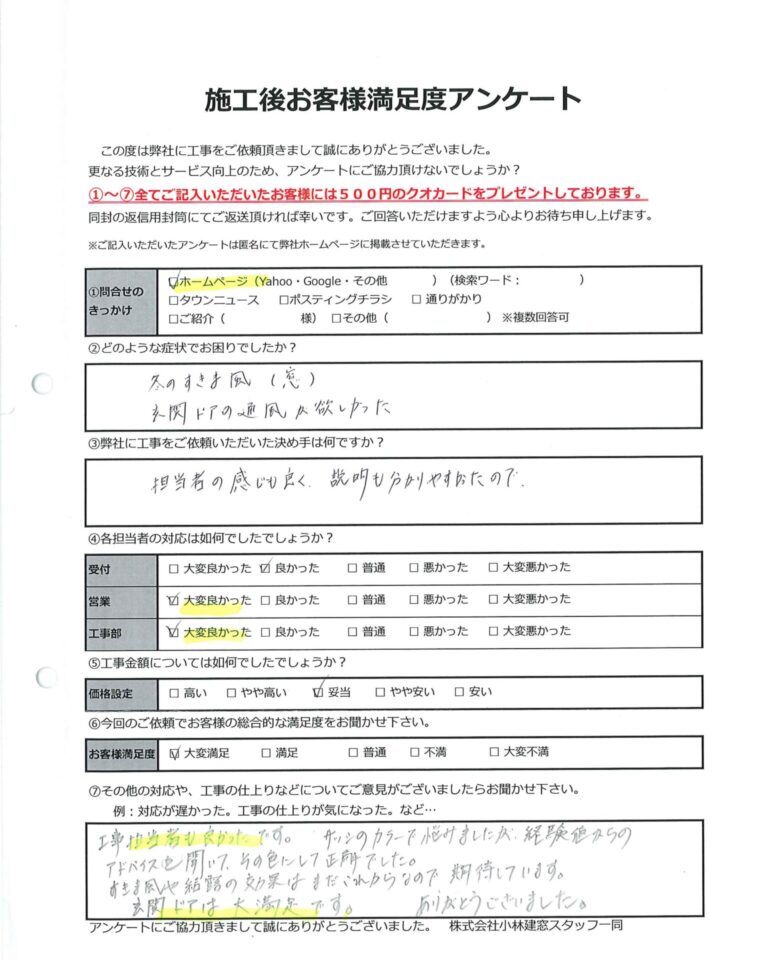 施工後お客様満足度アンケート
この度は弊社に工事をご依頼頂きまして誠にありがとうございました。
更なる技術とサービス向上のため、アンケートにご協力頂けないでしょうか？
①～⑦全てご記入いただいたお客様には５００円のクオカードをプレゼントしております。
同封の返信用封筒にてご返送頂ければ幸いです。ご回答いただけますよう心よりお待ち申し上げます。
※ご記入いただいたアンケートは匿名にて弊社ホームページに掲載させていただきます。
①問合せのきっかけ
☑ホームページ（Yahoo・Google・その他　　　　）（検索ワード：　　　　　）
□タウンニュース　□ポスティングチラシ　□ 通りがかり
□ご紹介（　　　　　　様）□その他（　　　　　　　　）※複数回答可
②どのような症状でお困りでしたか？
冬のすきま風（窓）
玄関ドアの通風が欲しかった
③弊社に工事をご依頼いただいた決め手は何ですか？
担当者の感じも良く、説明も分かりやすかたので、
④各担当者の対応は如何でしたでしょうか？
受付　□ 大変良かった ☑ 良かった　□ 普通　□ 悪かった　□ 大変悪かった
営業　☑ 大変良かった □ 良かった　□ 普通　□ 悪かった　□ 大変悪かった
工事部　☑ 大変良かった □ 良かった　□ 普通　□ 悪かった　□ 大変悪かった
⑤工事金額については如何でしたでしょうか？
価格設定　□ 高い　□ やや高い　☑ 妥当　□ やや安い　□ 安い
⑥今回のご依頼でお客様の総合的な満足度をお聞かせ下さい。
お客様満足度　☑ 大変満足　□ 満足　□ 普通　□ 不満　□ 大変不満
⑦その他の対応や、工事の仕上りなどについてご意見がございましたらお聞かせ下さい。
例：対応が遅かった。工事の仕上りが気になった。など…
工事担当者も良かったです。　サッシのカラーで悩みましたが、経験値からの
アドバイスを聞いて、その色にして正解でした。
すきま風や結露の効果はまだこれからなので期待しています。
玄関ドアは大満足です。　ありがとうございました。
アンケートにご協力頂きまして誠にありがとうございました。　株式会社小林建窓スタッフ一同